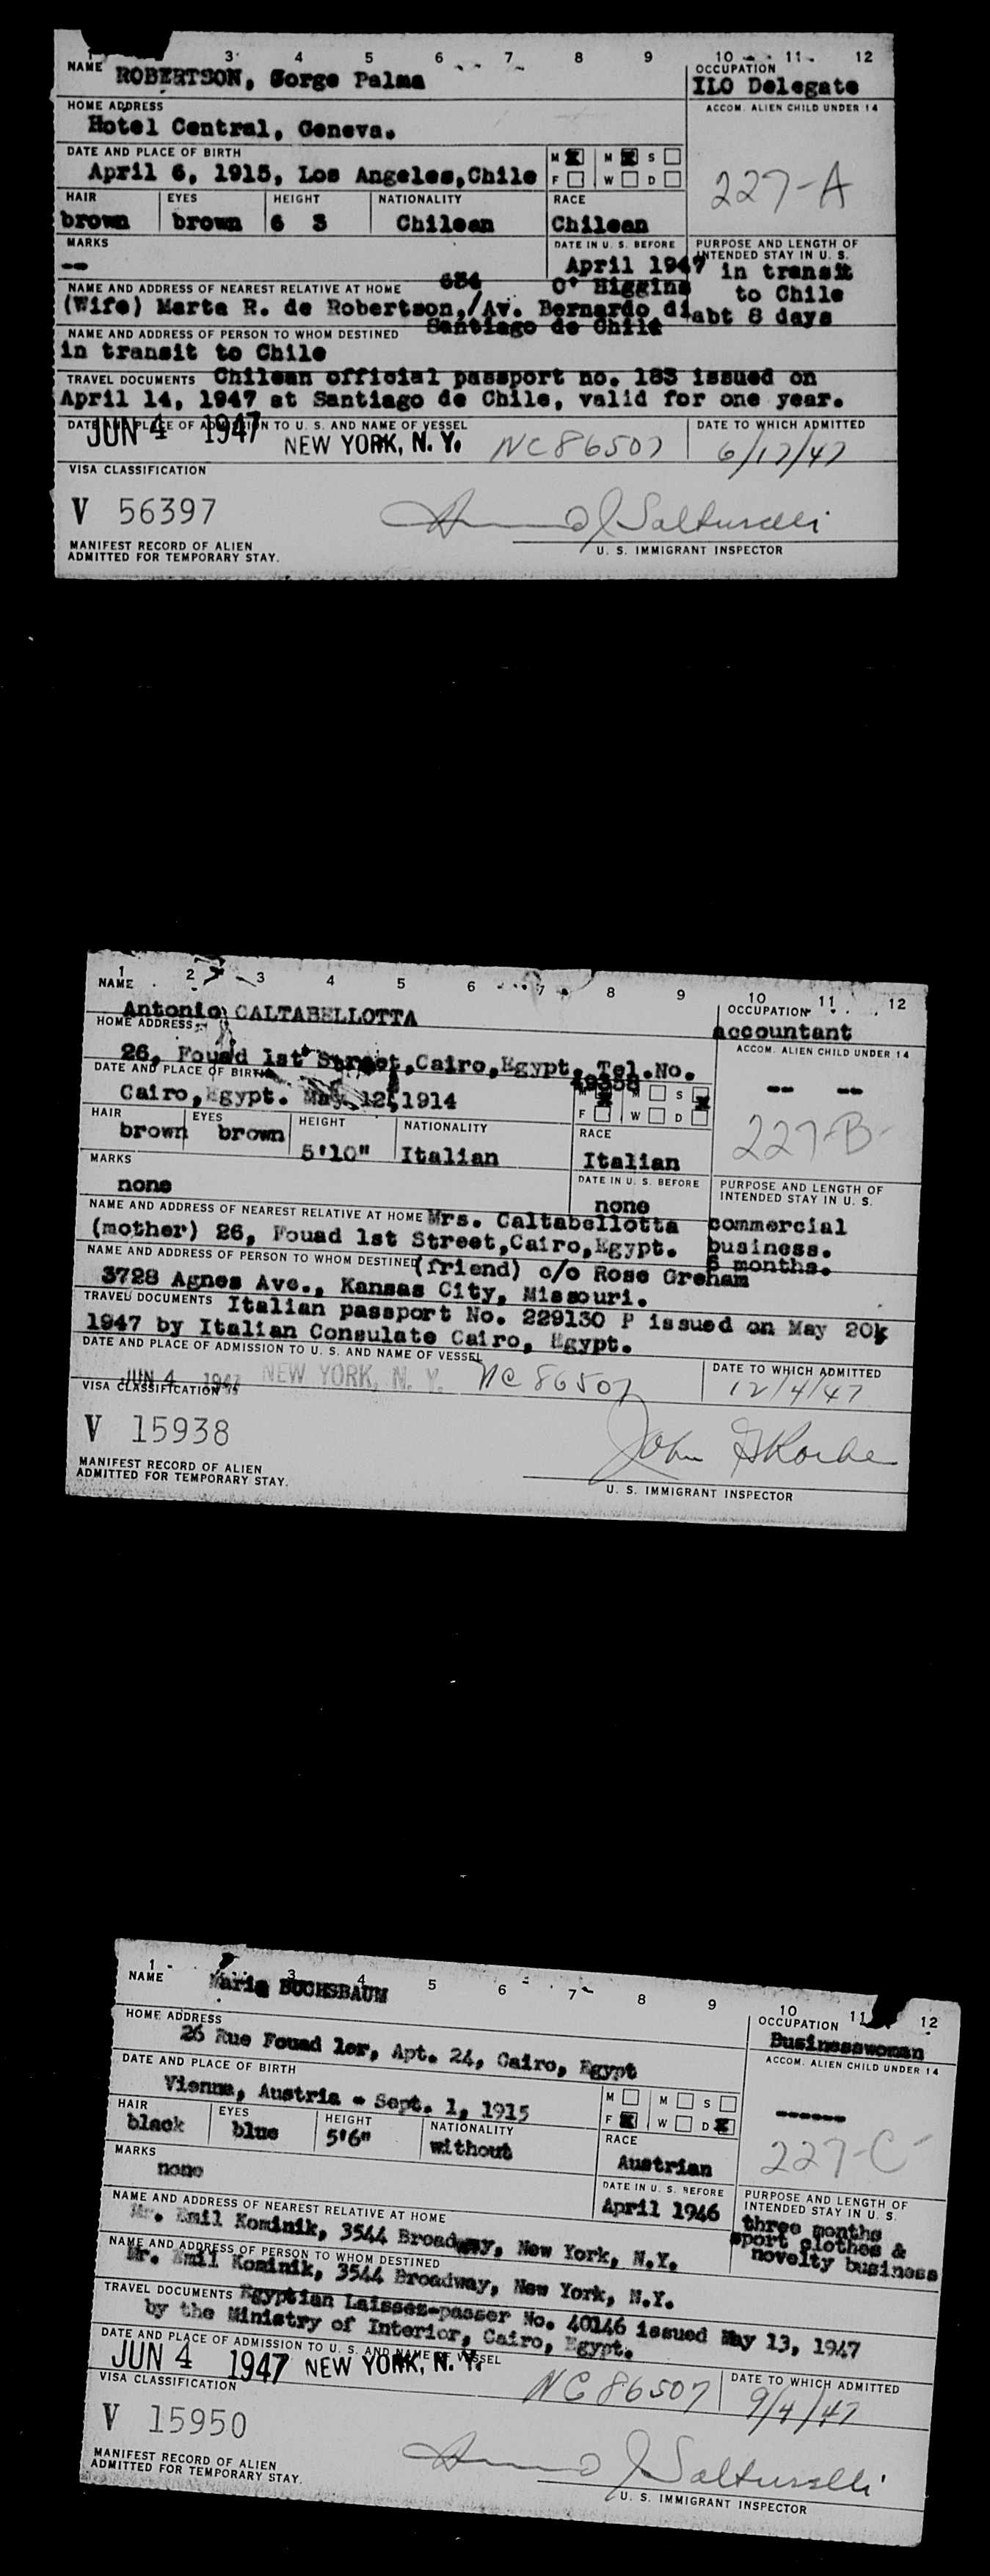 3 4 5 6 7 8 9 10 11 12
NAME ROBERTSON, Gorge Palma
OCCUPATION
ILO Delegate
HOME ADDRESS
Hotel Central, Geneva.
ACCOM. ALIEN CHILD UNDER 14
DATE AND PLACE OF BIRTH
April 6, 1915, Los Angeles, Chile
M M S
F W D
227-A
HAIR EYES HEIGHT NATIONALITY RACE
brown brown 6 3 Chilean Chilean
MARKS
--
DATE IN U. S. BEFORE
April 1947
PURPOSE AND LENGTH OF
INTENDED STAY IN U. S.
in transit
to Chile
abt 8 days
NAME AND ADDRESS OF NEAREST RELATIVE AT HOME 654 O' Higgins
(Wife) Marta R. de Robertson,/Av. Bernardo di
Santiago de Chile
NAME AND ADDRESS OF PERSON TO WHOM DESTINED
in transit to Chile
TRAVEL DOCUMENTS Chilean official passport no. 183 issued on
April 14, 1947 at Santiago de Chile, valid for one year.
DATE AND PLACE OF ADMISSION TO U. S. AND NAME OF VESSEL
JUN 4 1947 NEW YORK, N. Y. NC 86507
DATE TO WHICH ADMITTED
6/12/47
VISA CLASSIFICATION
V 56397
MANIFEST RECORD OF ALIEN
ADMITTED FOR TEMPORARY STAY.
U. S. IMMIGRANT INSPECTOR
1 2 3 4 5 6 7 8 9 10 11 12
NAME
Antonio CALTABELLOTTA
OCCUPATION
accountant
HOME ADDRESS
26, Fouad 1st Street, Cairo, Egypt, Tel.No.
49358
ACCOM. ALIEN CHILD UNDER 14
-- --
DATE AND PLACE OF BIRTH
Cairo, Egypt. May 12, 1914
M M S
F W D
227-B-
HAIR EYES HEIGHT NATIONALITY RACE
brown brown 5'10" Italian Italian
MARKS
none
DATE IN U. S. BEFORE
none
PURPOSE AND LENGTH OF
INTENDED STAY IN U. S.
commercial
business.
6 months.
NAME AND ADDRESS OF NEAREST RELATIVE AT HOME Mrs. Caltabellotta
(mother) 26, Fouad 1st Street, Cairo, Egypt.
NAME AND ADDRESS OF PERSON TO WHOM DESTINED (friend) c/o Rose Greham
3728 Agnes Ave., Kansas City, Missouri.
TRAVEL DOCUMENTS Italian passport No. 229130 P issued on May 20
1947 by Italian Consulate Cairo, Egypt.
DATE AND PLACE OF ADMISSION TO U. S. AND NAME OF VESSEL
JUN 4 1947 NEW YORK, N. Y. NC 86507
DATE TO WHICH ADMITTED
12/4/47
VISA CLASSIFICATION
V 15938
MANIFEST RECORD OF ALIEN
ADMITTED FOR TEMPORARY STAY.
John
U. S. IMMIGRANT INSPECTOR
1 3 4 5 6 7 8 9 10 11 12
NAME Maria BUCHSBAUM
OCCUPATION
Businesswoman
HOME ADDRESS
26 Rue Fouad 1er, Apt. 24, Cairo, Egypt
ACCOM. ALIEN CHILD UNDER 14
------
DATE AND PLACE OF BIRTH
Vienna, Austria - Sept. 1, 1915
M M S
F W D
227-C-
HAIR EYES HEIGHT NATIONALITY RACE
black blue 5'6" without Austrian
MARKS
none
DATE IN U. S. BEFORE
April 1946
PURPOSE AND LENGTH OF
INTENDED STAY IN U. S.
three months
sport clothes &
novelty business
NAME AND ADDRESS OF NEAREST RELATIVE AT HOME
Mr. Emil Kominik, 3544 Broadway, New York, N.Y.
NAME AND ADDRESS OF PERSON TO WHOM DESTINED
Mr. Emil Kominik, 3544 Broadway, New York, N.Y.
TRAVEL DOCUMENTS Egyptian Laissez-passer No. 40146 issued May 13, 1947
by the Ministry of Interior, Cairo, Egypt.
DATE AND PLACE OF ADMISSION TO U. S. AND NAME OF VESSEL
JUN 4 1947 NEW YORK, N. Y. NC 86507
DATE TO WHICH ADMITTED
9/4/47
VISA CLASSIFICATION
V 15950
MANIFEST RECORD OF ALIEN
ADMITTED FOR TEMPORARY STAY.
U. S. IMMIGRANT INSPECTOR